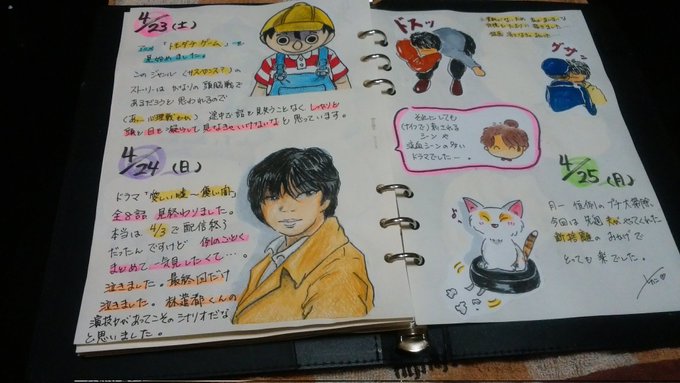 4/23(土)
「トモダチゲーム」を
見始めました。
このジャンル(サスペンス?)の
ストーリーはかなりの頭脳戦で
あるだろうと思われるので
途中で話を見失うことなく、しっかりと
頭と目を凝らして見なきゃいけないなと思っています。
4/24(日)
ドラマ「愛しい嘘〜優しい闇」
全8話 見終わりました。
本当は4/3で配信終了
だったんですけど 例のごとく
まとめて一気見したくて…。
泣きました。最終回だけ
泣きました。林遣都くんの
演技力があってこそのシナリオだな
と思いました。
ドスッ
グサッ
それにしても
(ナイフで)刺される
シーンや
流血シーンの多い
ドラマでしたー。
4/25(月)
月一恒例のプチ大掃除、
今回は先週 夫がやってくれた
おかげで
とっても楽でした。